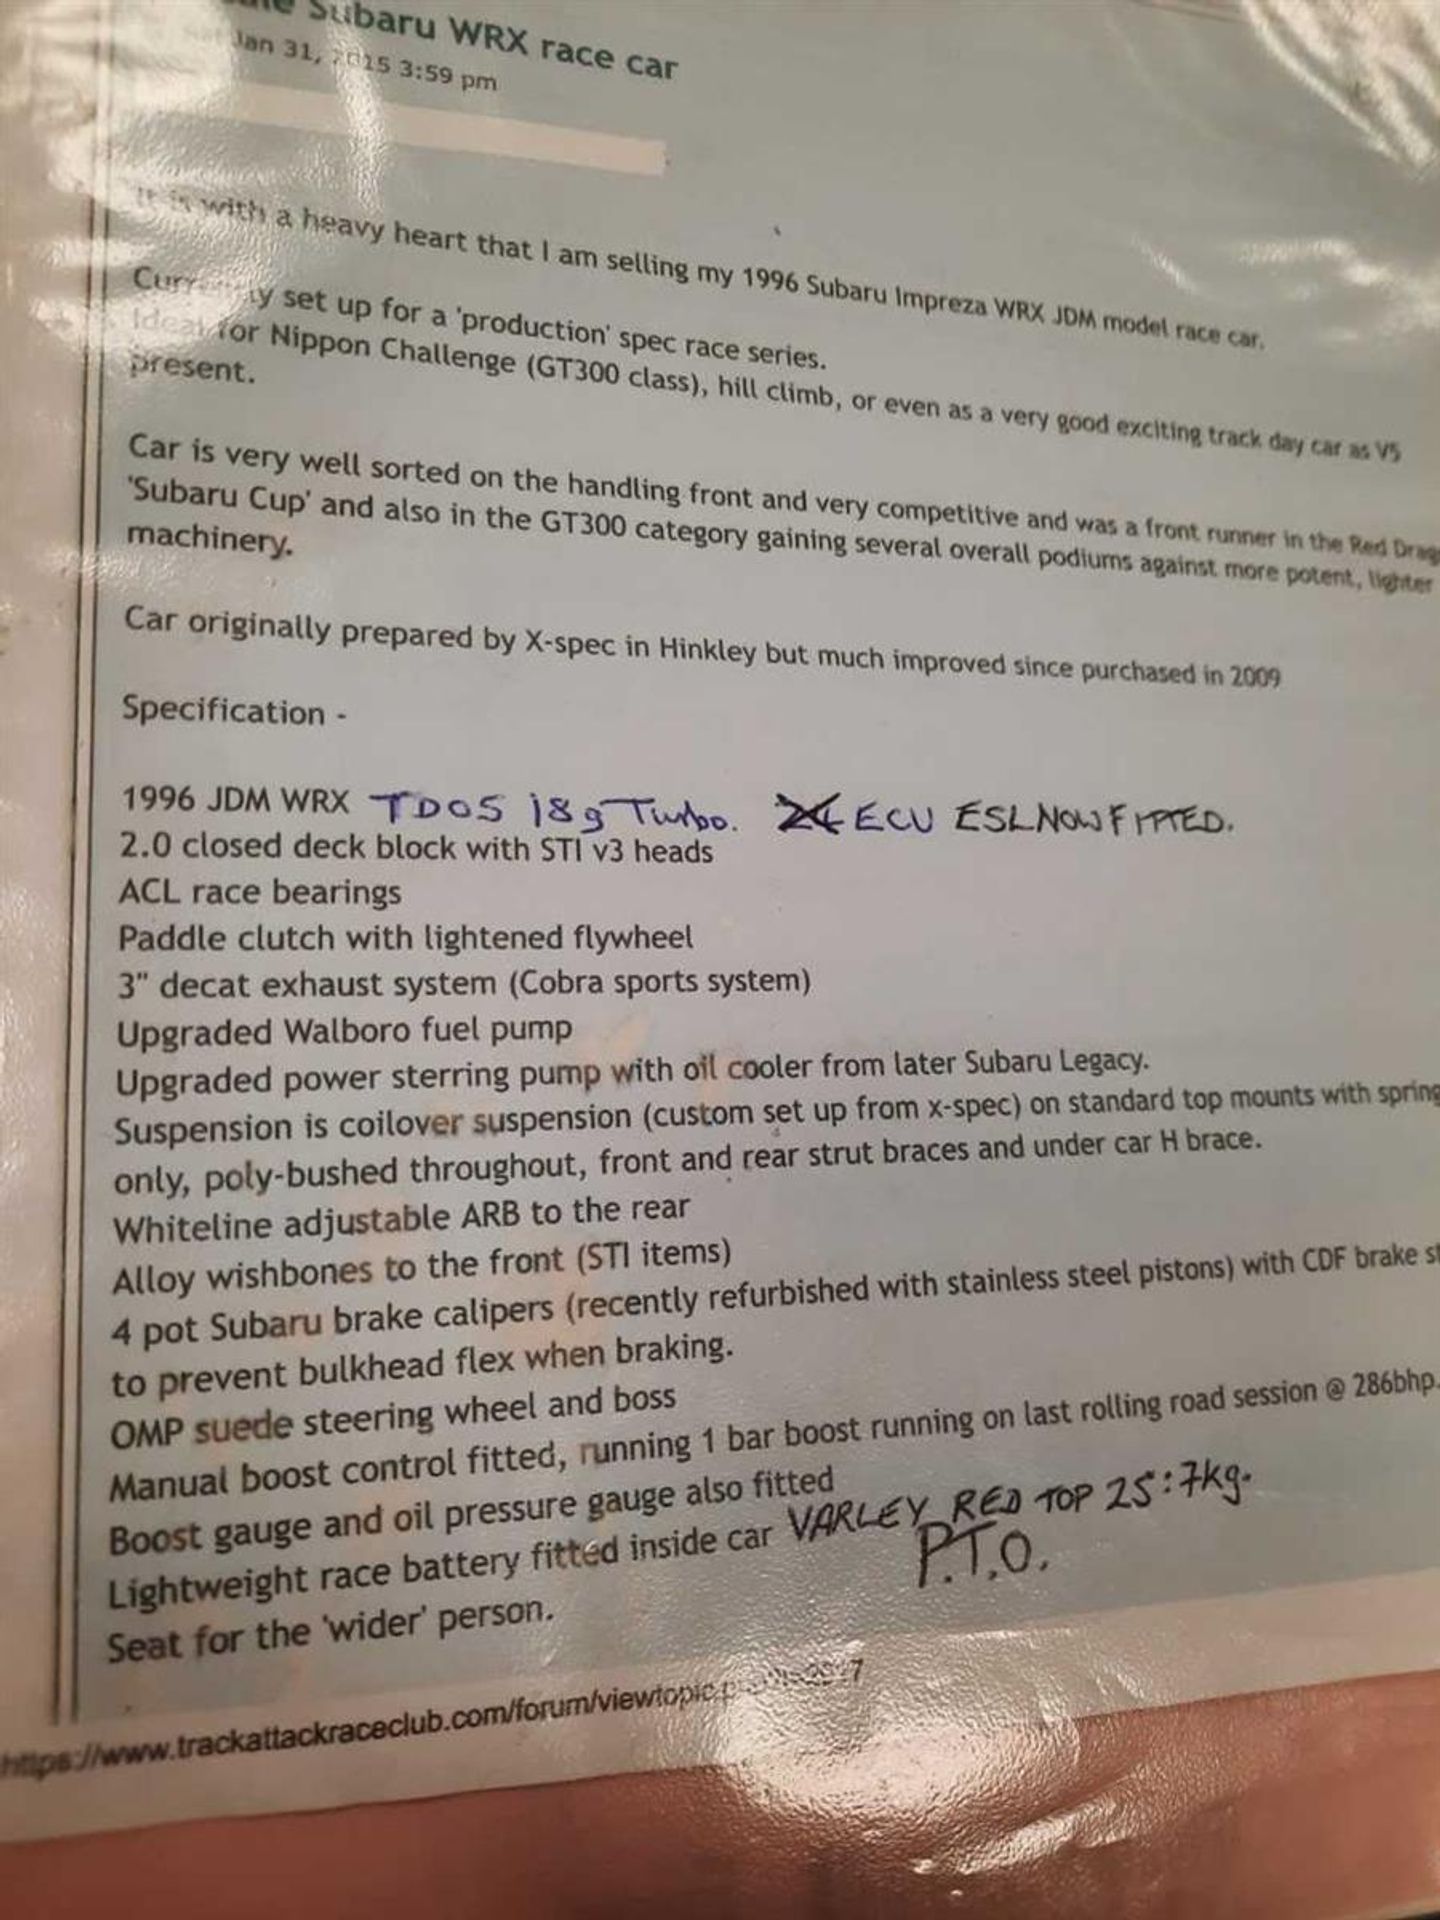 Subaru WRX race car
Jan 31, 2015 3:59 pm
It is with a heavy heart that I am selling my 1996 Subaru Impreza WRX JDM model race car.
Currently set up for a 'production' spec race series.
Ideal for Nippon Challenge (GT300 class), hill climb, or even as a very good exciting track day car as V5
present.
Car is very well sorted on the handling front and very competitive and was a front runner in the Red Drag
'Subaru Cup' and also in the GT300 category gaining several overall podiums against more potent, lighter
machinery.
Car originally prepared by X-spec in Hinkley but much improved since purchased in 2009
Specification -
1996 JDM WRX TD05 18g Turbo. ECU ESL NOW FITTED.
2.0 closed deck block with STI v3 heads
ACL race bearings
Paddle clutch with lightened flywheel
3" decat exhaust system (Cobra sports system)
Upgraded Walboro fuel pump
Upgraded power sterring pump with oil cooler from later Subaru Legacy.
Suspension is coilover suspension (custom set up from x-spec) on standard top mounts with spring
only, poly-bushed throughout, front and rear strut braces and under car H brace.
Whiteline adjustable ARB to the rear
Alloy wishbones to the front (STI items)
4 pot Subaru brake calipers (recently refurbished with stainless steel pistons) with CDF brake st
to prevent bulkhead flex when braking.
OMP suede steering wheel and boss
Manual boost control fitted, running 1 bar boost running on last rolling road session @ 286bhp.
Boost gauge and oil pressure gauge also fitted
Lightweight race battery fitted inside car VARLEY RED TOP 25 :7kg.
Seat for the 'wider' person. P.T.O.
https://www.trackattackraceclub.com/forum/viewtopic.p